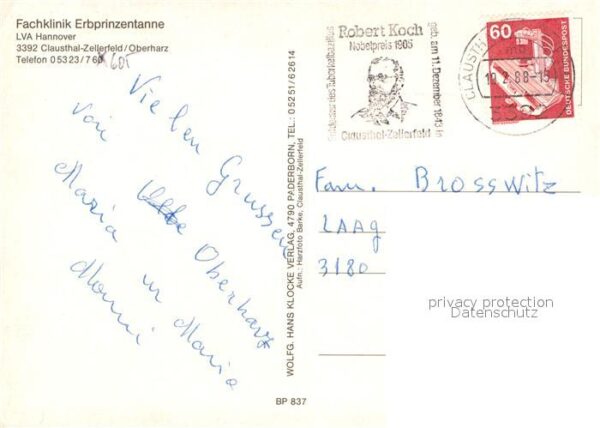 Fachklinik Erbprinzentanne
LVA Hannover
3392 Clausthal-Zellerfeld/Oberharz
Telefon 0 53 23/7 60
Vielen Grussen
von Oberharz
Maria in Maria
WOLFG. HANS KLOCKE VERLAG, 4790 PADERBORN, TEL.: 0 52 51/6 26 14
Aufn.: Harzfoto Barke, Clausthal-Zellerfeld
BP 837
Robert Koch
Nobelpreis 1905
geb. am 11. Dezember 1843 in
Clausthal-Zellerfeld
60
DEUTSCHE BUNDESPOST
Fam. Brosswitz
LAAG
3180
privacy protection
Datenschutz